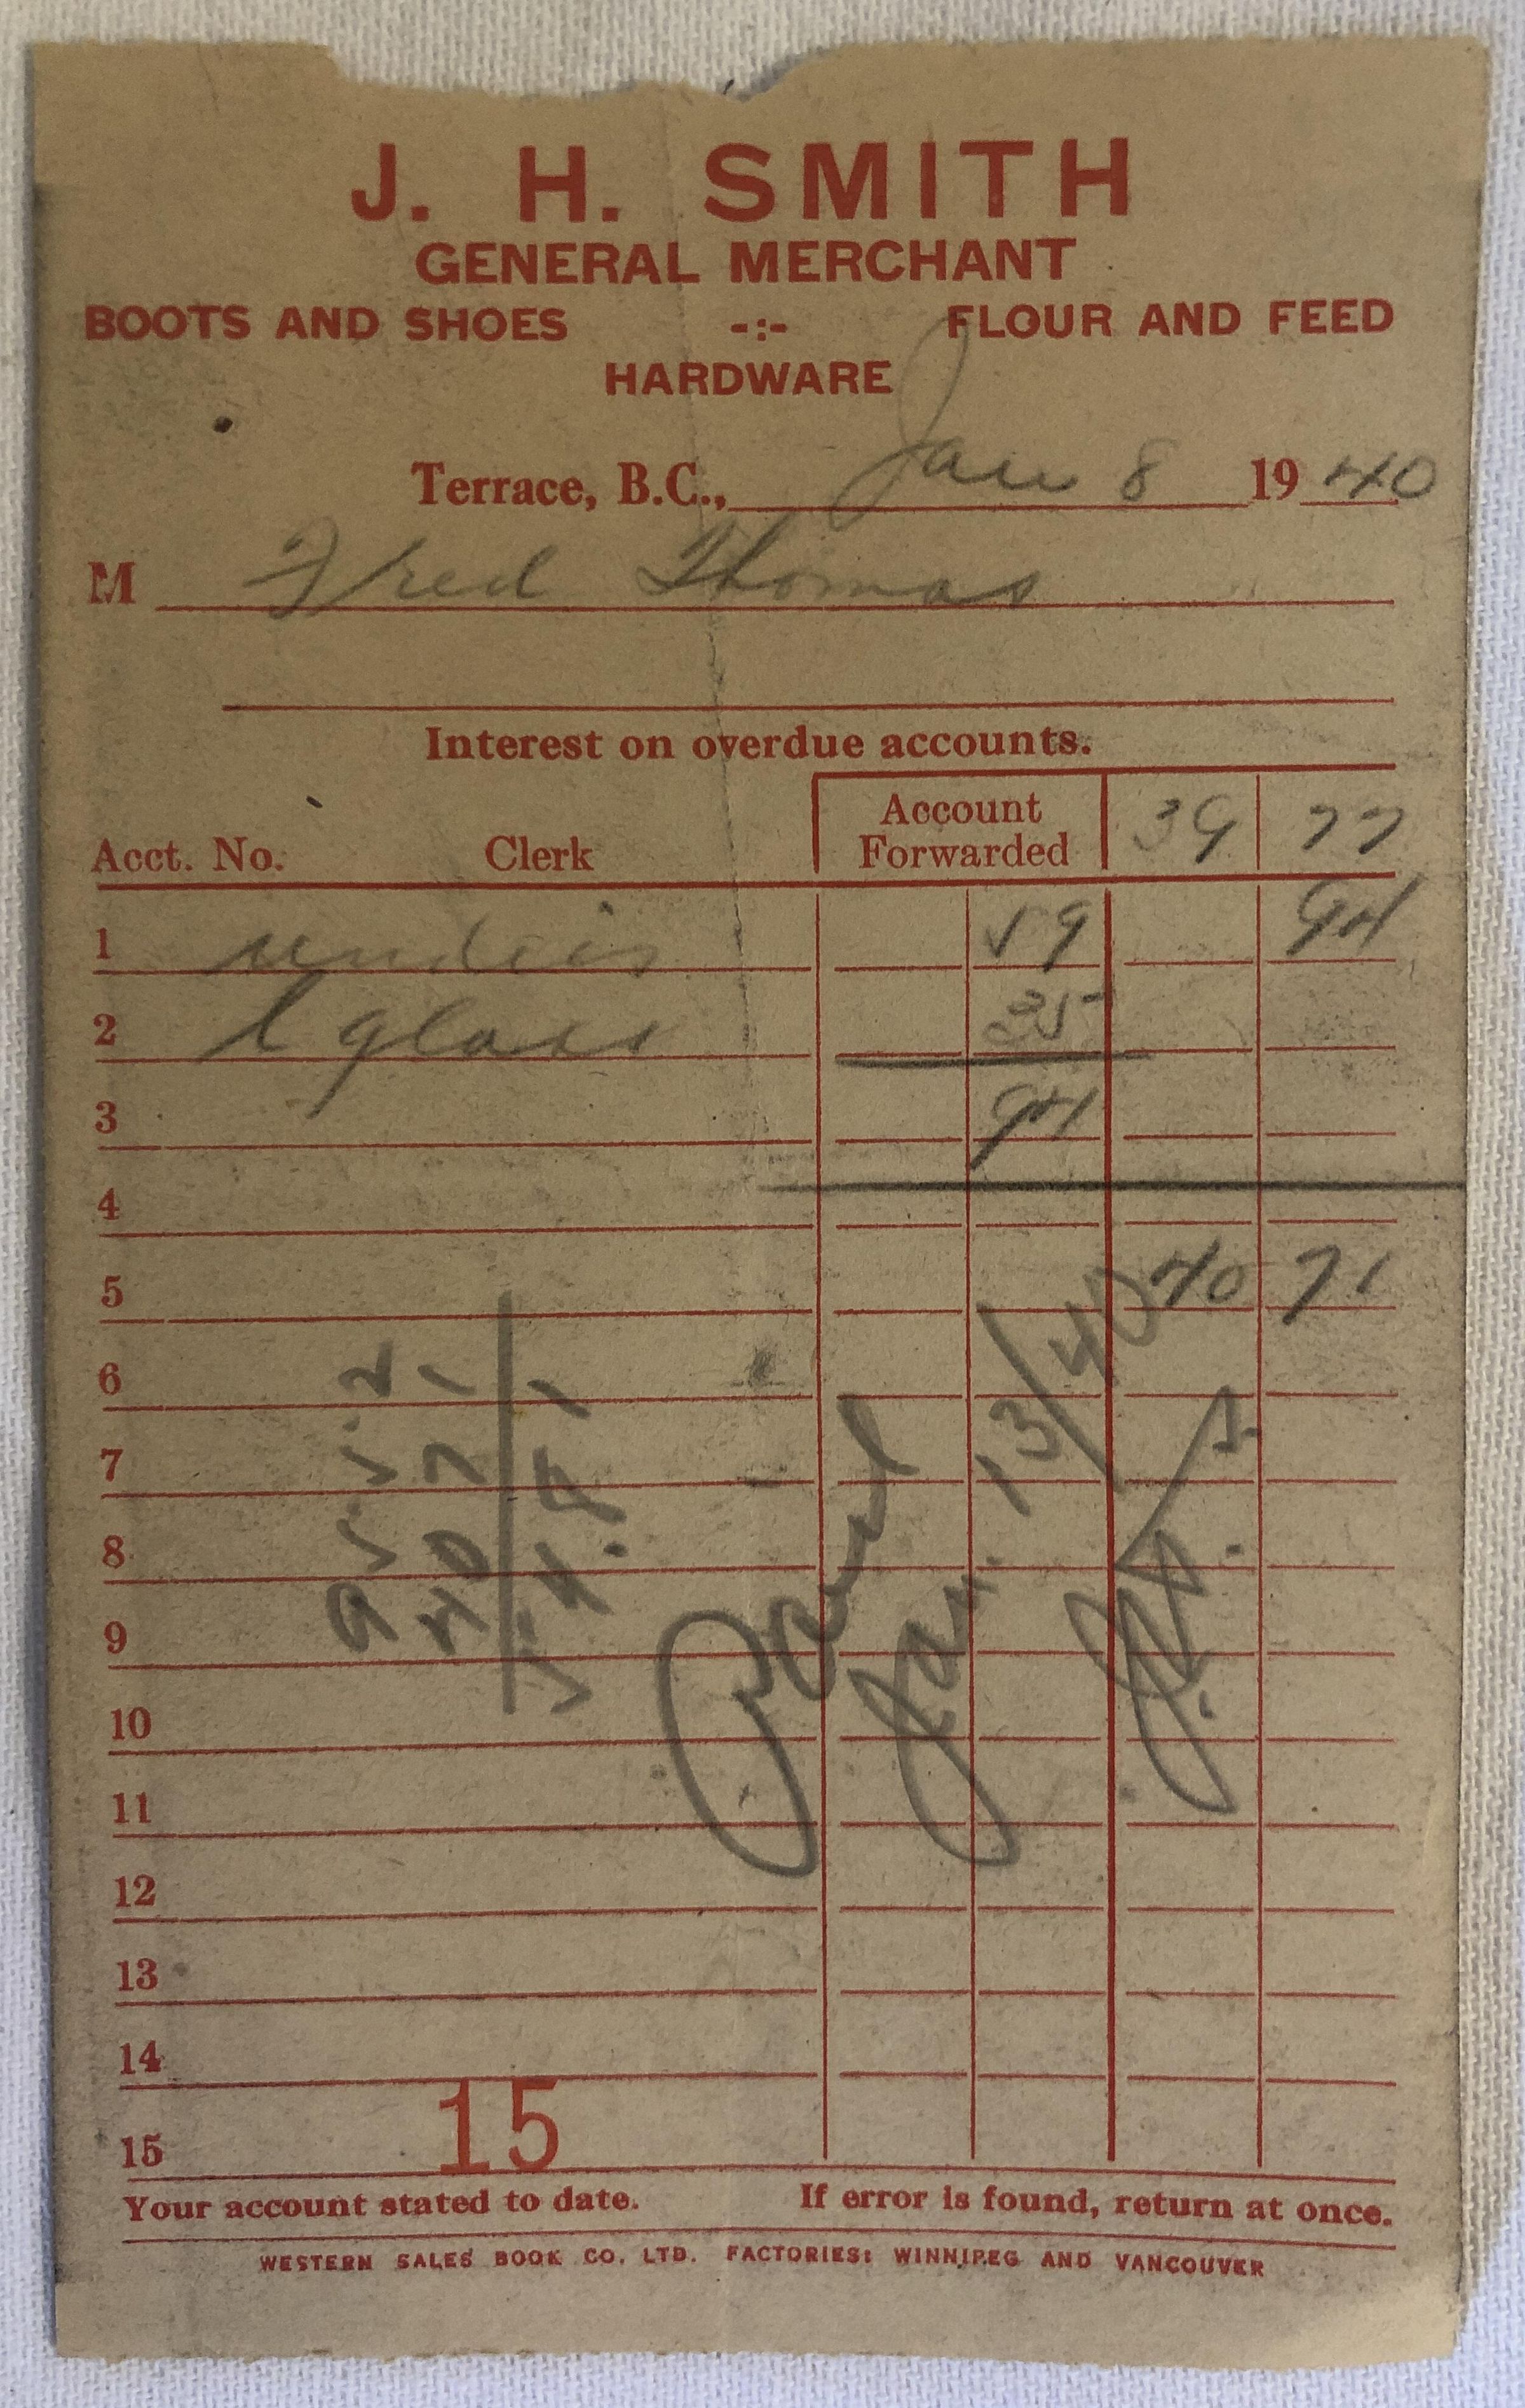 J. H. SMITH
GENERAL MERCHANT
BOOTS AND SHOES -:- FLOUR AND FEED
HARDWARE
Terrace, B.C., Jan 8 1940
M Fred Thomas
Interest on overdue accounts.
Acct. No. Clerk Account Forwarded 39 77
1 59 94
2 1 glass 35
3 94
4
5 40 71
6
7
8
9
10
11
12
13
14
15 15
Paid
Jan. 13/40
J.H.S.
95.52
40 71
54.81
Your account stated to date. If error is found, return at once.
WESTERN SALES BOOK CO. LTD. FACTORIES: WINNIPEG AND VANCOUVER